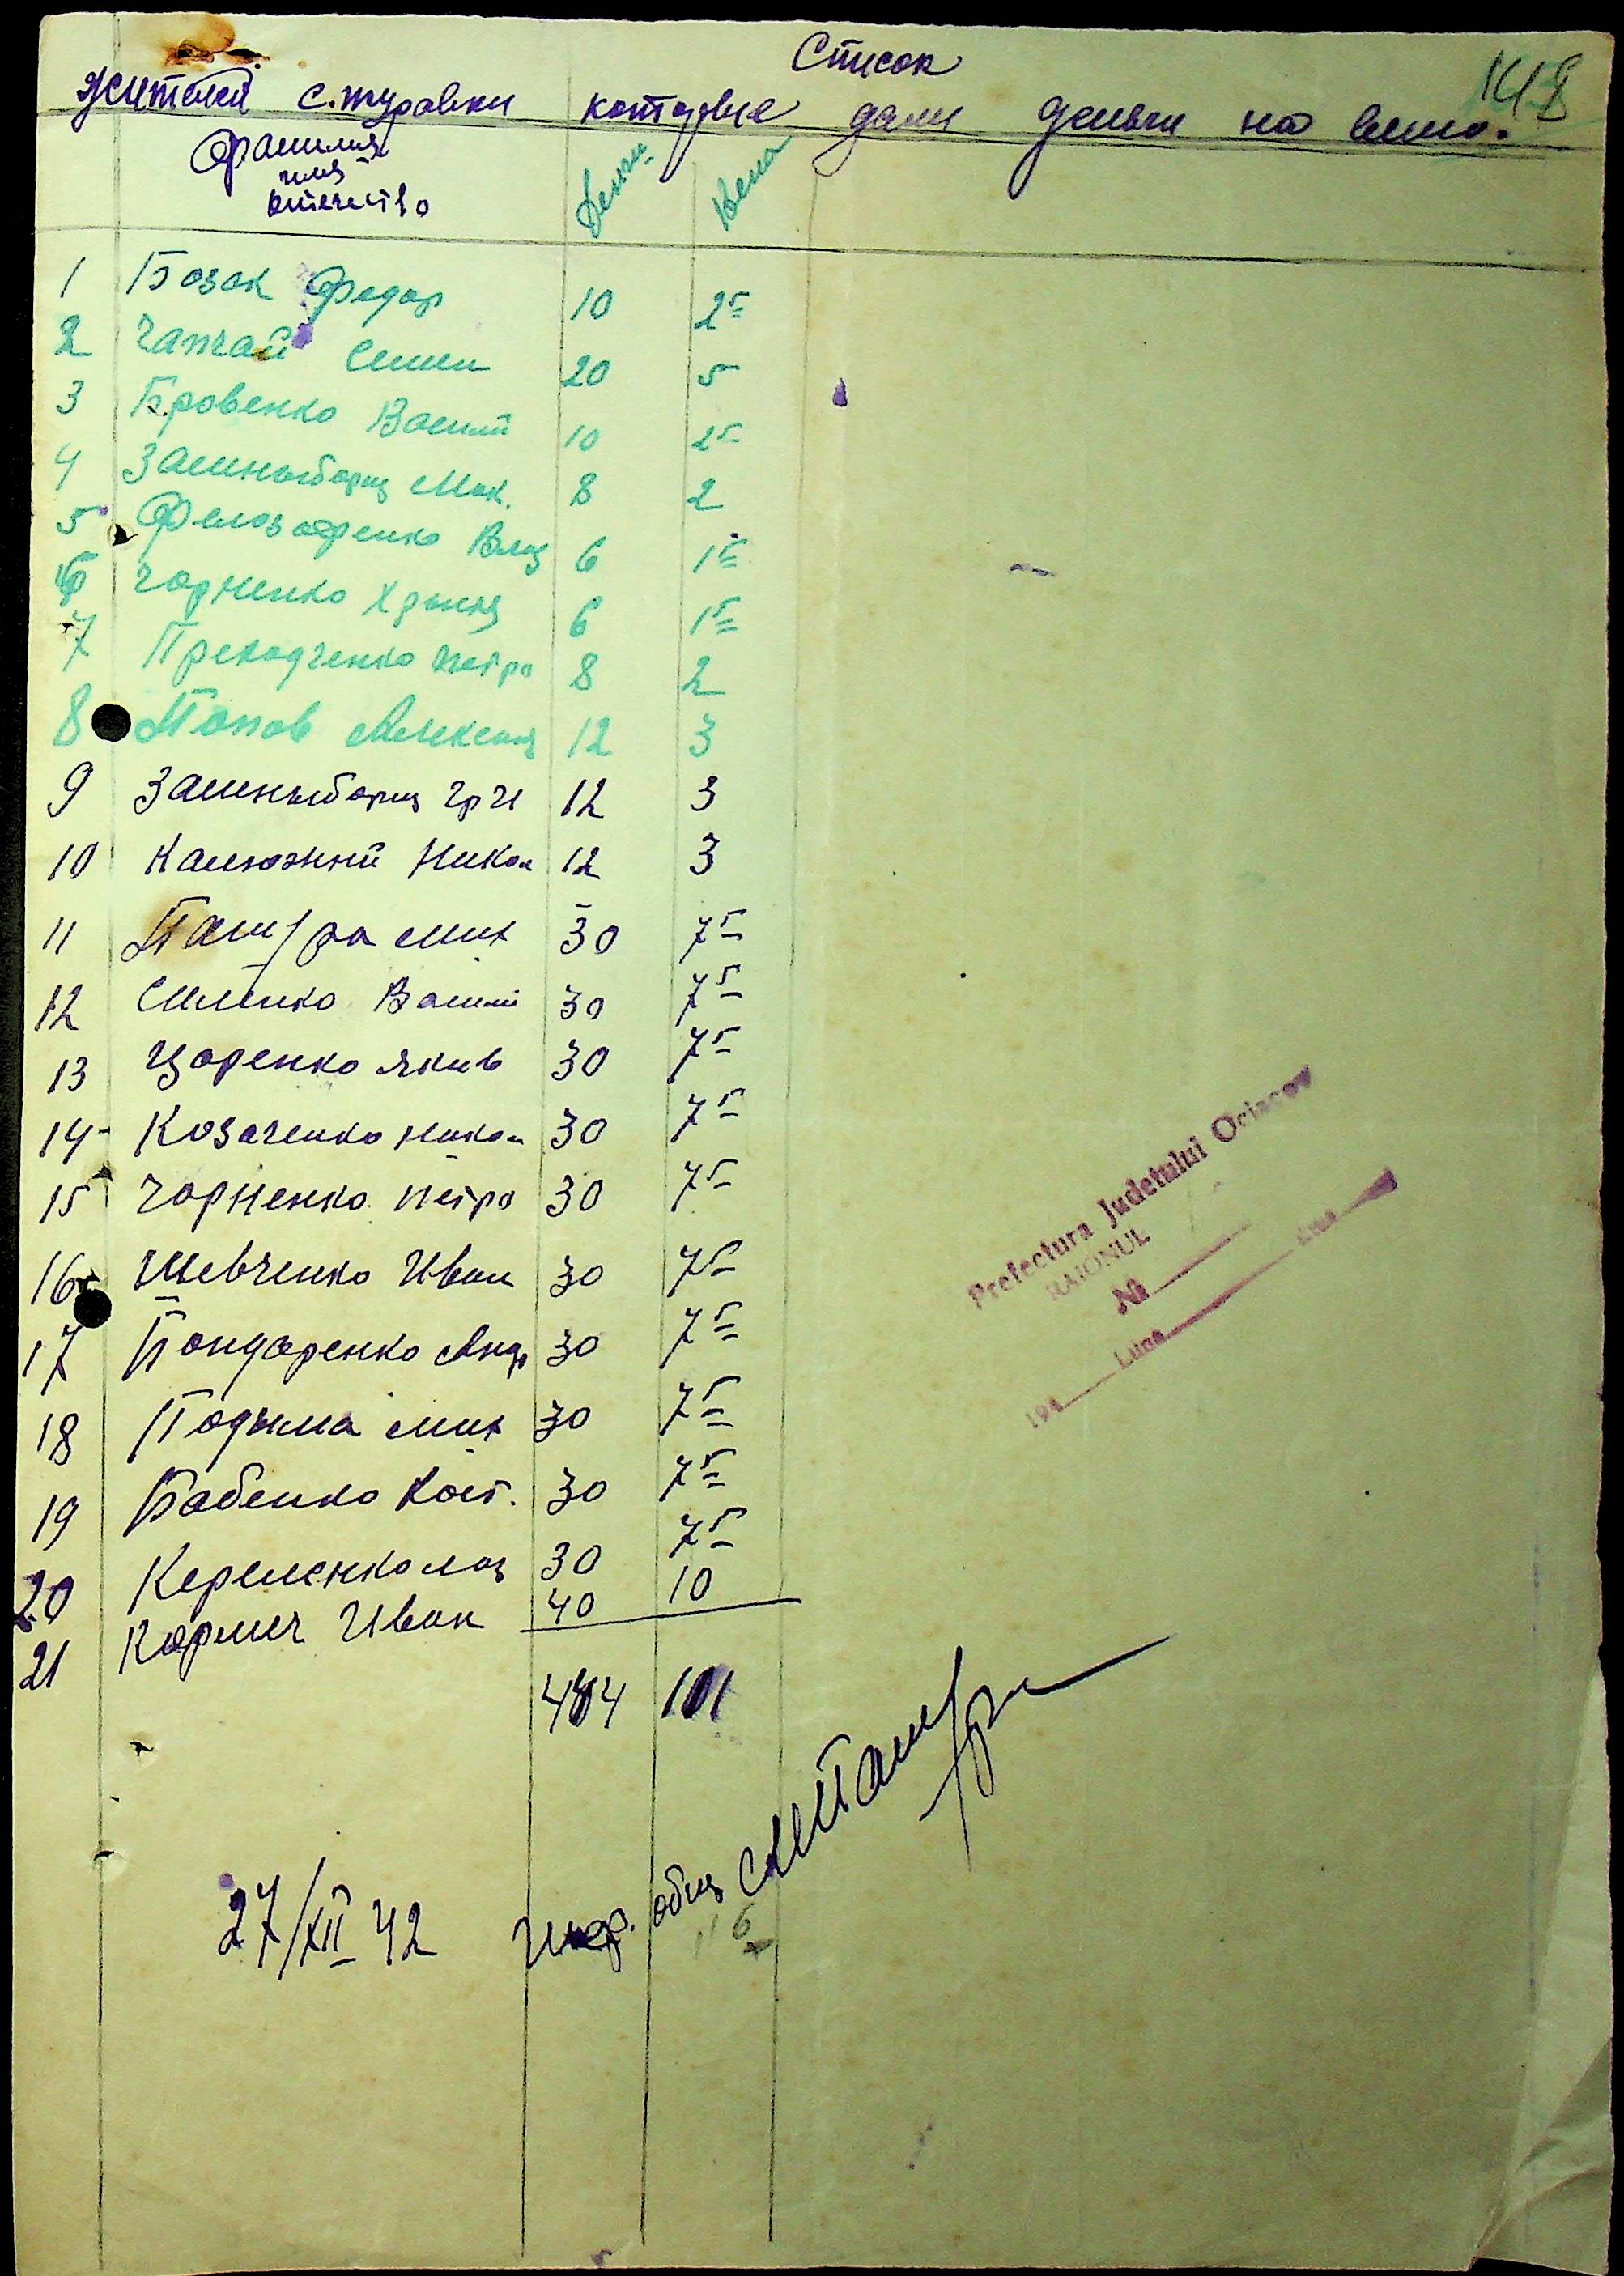 Список
148
жителей с. Журавки которые дали деньги на вино.
Фамилия
имя
отечество
деньги
вина
1 Бозак Федор 10 2 5
2 Чапчай Семен 20 5
3 Бровенко Василий 10 2 5
4 Замныборщ Мак. 8 2
5 Фелозофенко Влад 6 1 5
6 Чорненко 6 1 5
7 Преходченко Петро 8 2
8 Попов Александ 12 3
9 Замныборщ Гри 12 3
10 Калюжний Никол 12 3
11 Мих 30 7 5
12 Василий 30 7 5
13 Царенко Якив 30 7 5
14 Козаченко Никол 30 7 5
15 Чорненко Петро 30 7 5
16 Шевченко Иван 30 7 5
17 Бондаренко Андр 30 7 5
18 Подыма Мих 30 7 5
19 Бабенко Кост. 30 7 5
20 30 7 5
21 Кормич Иван 40 10
101
27/XII 42
общ
Prefectura Judetului Ociacov
RAIONUL
№
194 Luna Ziua